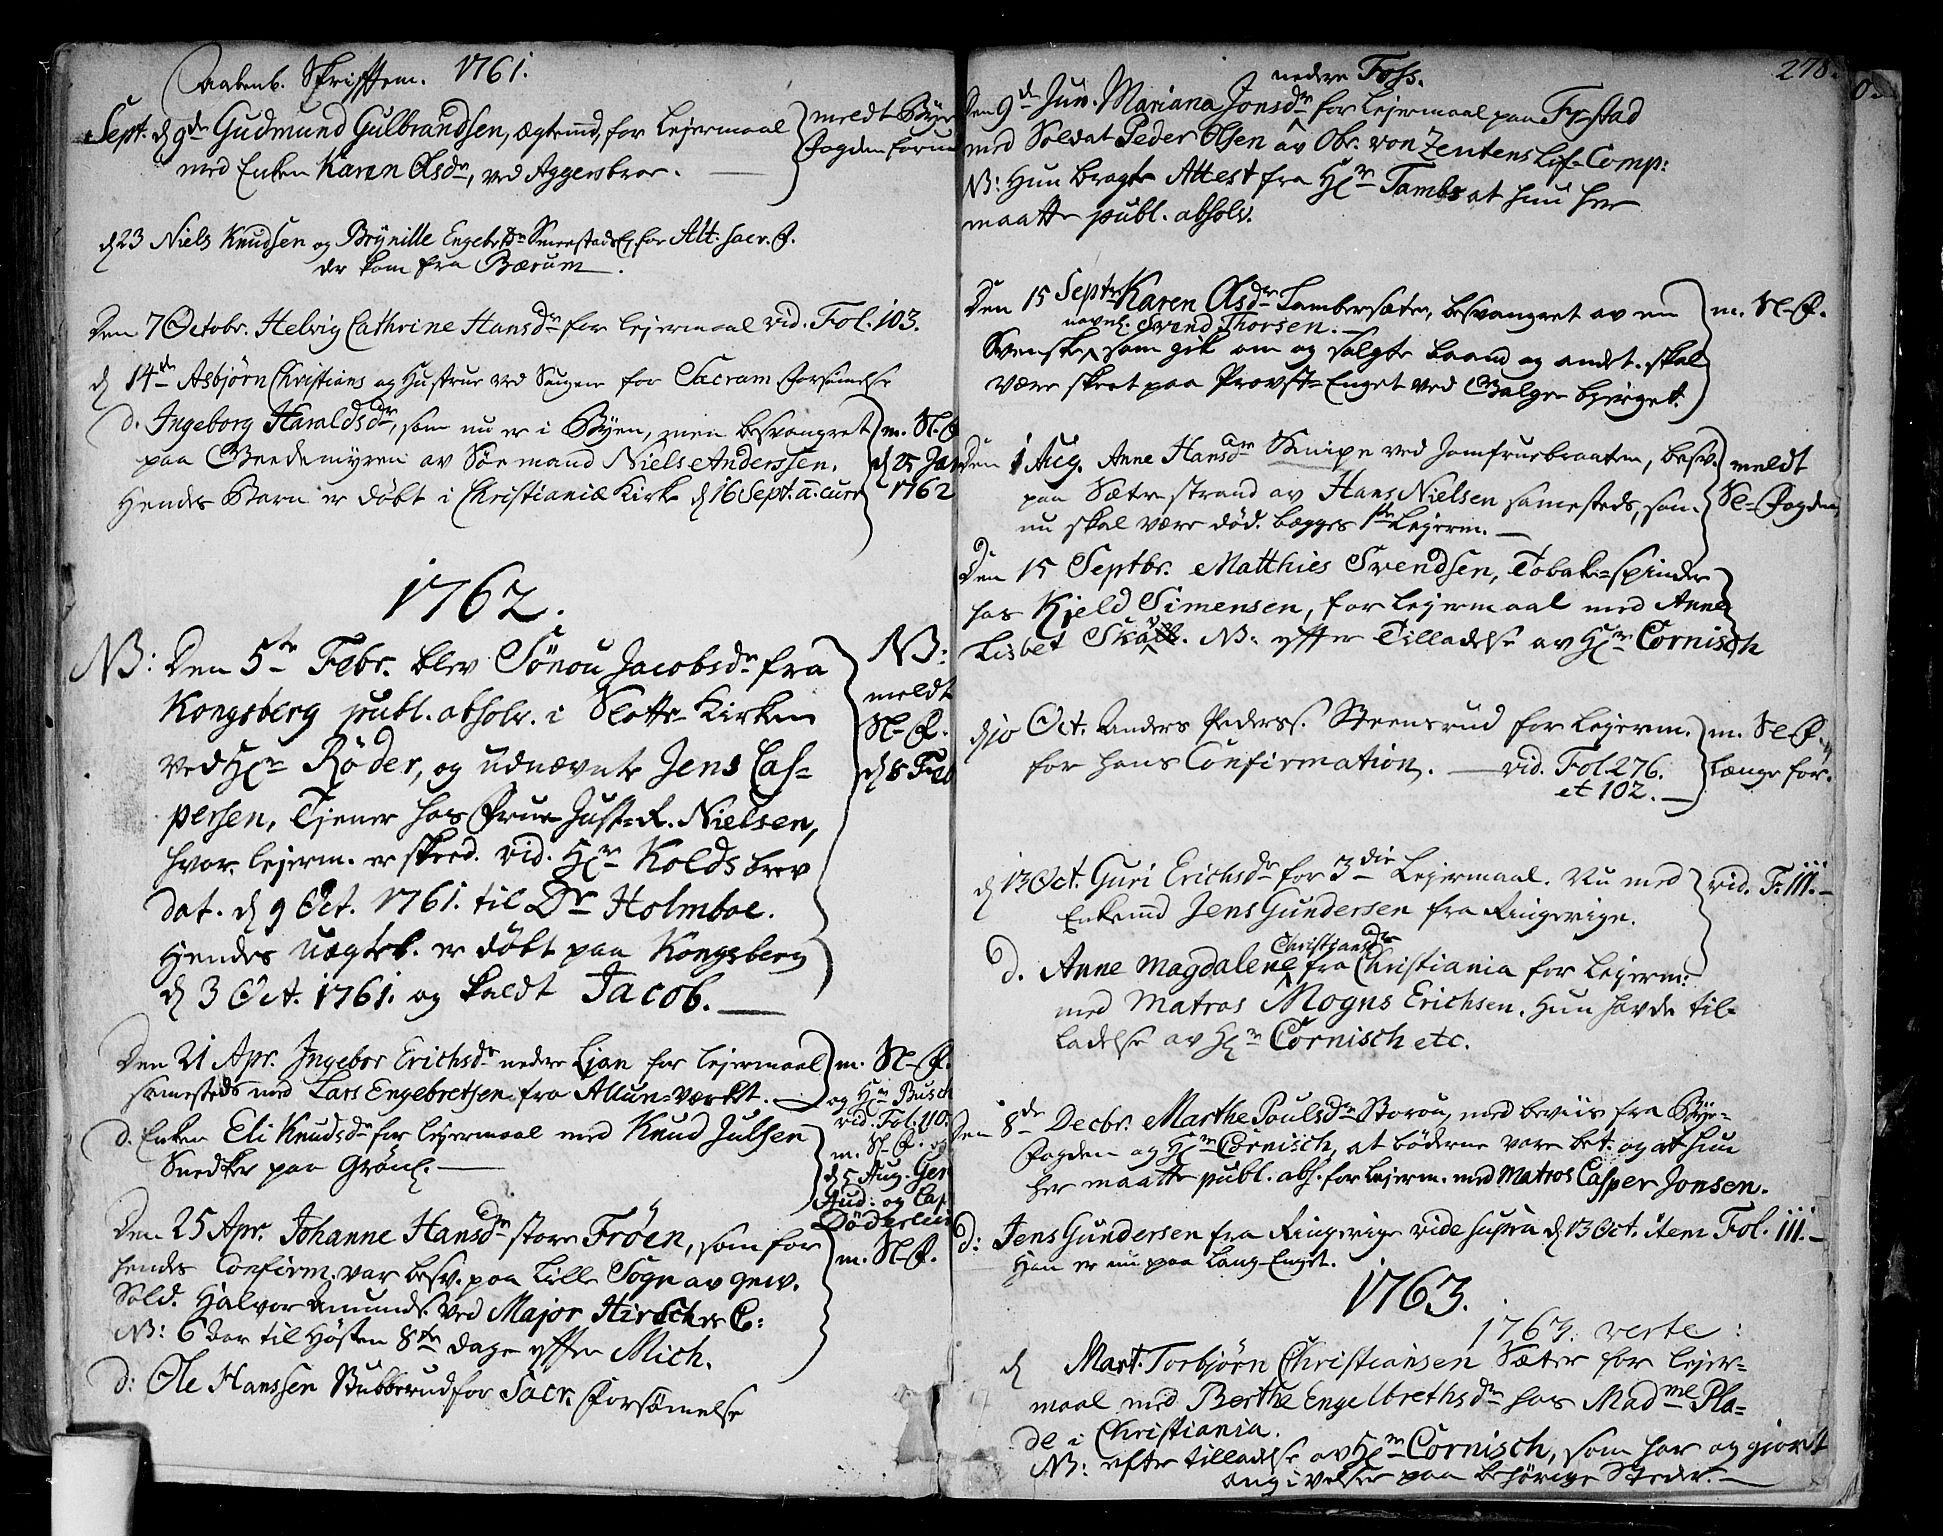 Aabenb. Skrifftem. 1761.
Sept. d 9de Gudmund Gulbrandsen, ægtemd, for Lejermaal
med Enken Karen Olsdr, ved Aggersbroe.
meldt Bye
Fogden forud
d 23 Niels Knudsen og Brynille Engebrtsdr Smeestads E, for Alt: sacr. F.
de kom fra Bærum.
Den 7 Octobr. Helvig Cathrine Hansdr for Lejermaal vid. Fol. 103.
d 14de Asbjørn Christians og Hustrue ved Saugene for Sacram Forsømelse
d. Ingeborg Haraldsdr, som nu er i Byen, men besvangret
paa Geedemyren av Søemand Niels Anderssen.
Hendes Barn er døbt i Christianiæ Kirke d 16 Sept. a. curr
m. Sl-F
d 25 Jan
1762
1762.
NB: Den 5te Febr. blev Sønou Jacobsdr fra
Kongsberg publ. absolv. i Slotts Kirken
ved Hr Røder, og udnævnte Jens Cas-
persen, Tjener hos Frue Just-R. Nielsen,
hvor Lejerm. er skeed. vid. Hr Kolds brev
dat. d 9 Oct. 1761. til Dr Holmboe.
Hendes uægteb. er døbt paa Kongsberg
d 3 Oct. 1761. og kaldt Jacob.
NB:
meldt
Sl-F.
d 8 Feb
Den 21 Apr. Ingebor Erichsdr nedre Ljan for Lejermaal
samesteds med Lars Engebretsen fra Allun-værket.
m. Sl-F.
og Hr Busch
vid. Fol. 110.
d. Enken Eli Knudsdr for Lejermaal med Knud Julsen
Snedker paa Grønl.
m. Sl-F. og
d 5 Aug. Gen
Aud: og Cap
Döderlein
Den 25 Apr. Johanne Hansdr store Frøen, som for
hendes Confirm. var besv. paa Lille Sogn av gew.
Sold. Halvor Amunds. ved Major Hirsches C:
NB: 6 Aar til Høsten 8te dage efter Mich.
m. Sl-F.
d: Ole Hanssen Stubberud for Sacr. Forsømelse
278.
nedre Foss.
Den 9de Jun. Mariana Jonsdr for Lejermaal paa Frstad
med Soldat Peder Olsen av Obr. von Zeutens Lif-Comp:
NB: Hun bragte Attest fra Hr Tambs at hun her
maatte publ. absolv.
Den 15 Septr Karen Olsdr Lambersæter, besvangret av en
navnl. Svend Thorsen.
Svensk, som gik om og solgte baand og andet. skal
være skeet paa Provst-Enget ved Galgebjerget.
m. Sl-F.
Den 1 Aug. Anne Hansdr Knipe ved Jomfruebraaten, besv.
paa Sætre strand av Hans Nielsen samesteds, som
nu skal være død. begges 1ste Lejerm.
meldt
Sl-Fogden
Den 15 Septbr. Matthies Svendsen, Tobak-spinder
hos Kjeld Simensen, for Lejermaal med Anne
Lisbet NB: efter Tilladelse av Hr Cornisch
d 10 Oct. Anders Pederss. Steensrud for Lejerm.
for hans Confirmation. vid. Fol 276.
et 102.
m. Sl-F.
længe for.
d 13 Oct. Guri Erichsdr for 3die Lejermaal. Nu med
Enkemd Jens Gundersen fra Ringerige.
vid. F. 111.
Christiansdr
d. Anne Magdalene fra Christiania for Lejerm:
med Matros Mogns Erichsen. Hun havde til-
ladelse av Hr Cornisch etc.
Den 8de Decbr. Marthe Poulsdr Storøu, med beviis fra Bye-
Fogden og Hr Cornisch, at bøderne vare bet. og at hun
her maatte publ. abs. for Lejerm. med Matros Casper Jonsen.
d: Jens Gundersen fra Ringerige vide supra d 13 Oct. item Fol. 111.
Han er nu paa Lang-Enget.
1763.
1763. verte:
d Mart. Torbjørn Christiansen Sæter for Lejer-
maal med Berthe Engelbrethsdr hos Madme Pla-
de i Christiania.
NB: efter tilladelse av Hr Cornisch, som har og gjordt
angivelse paa behørige Steder.